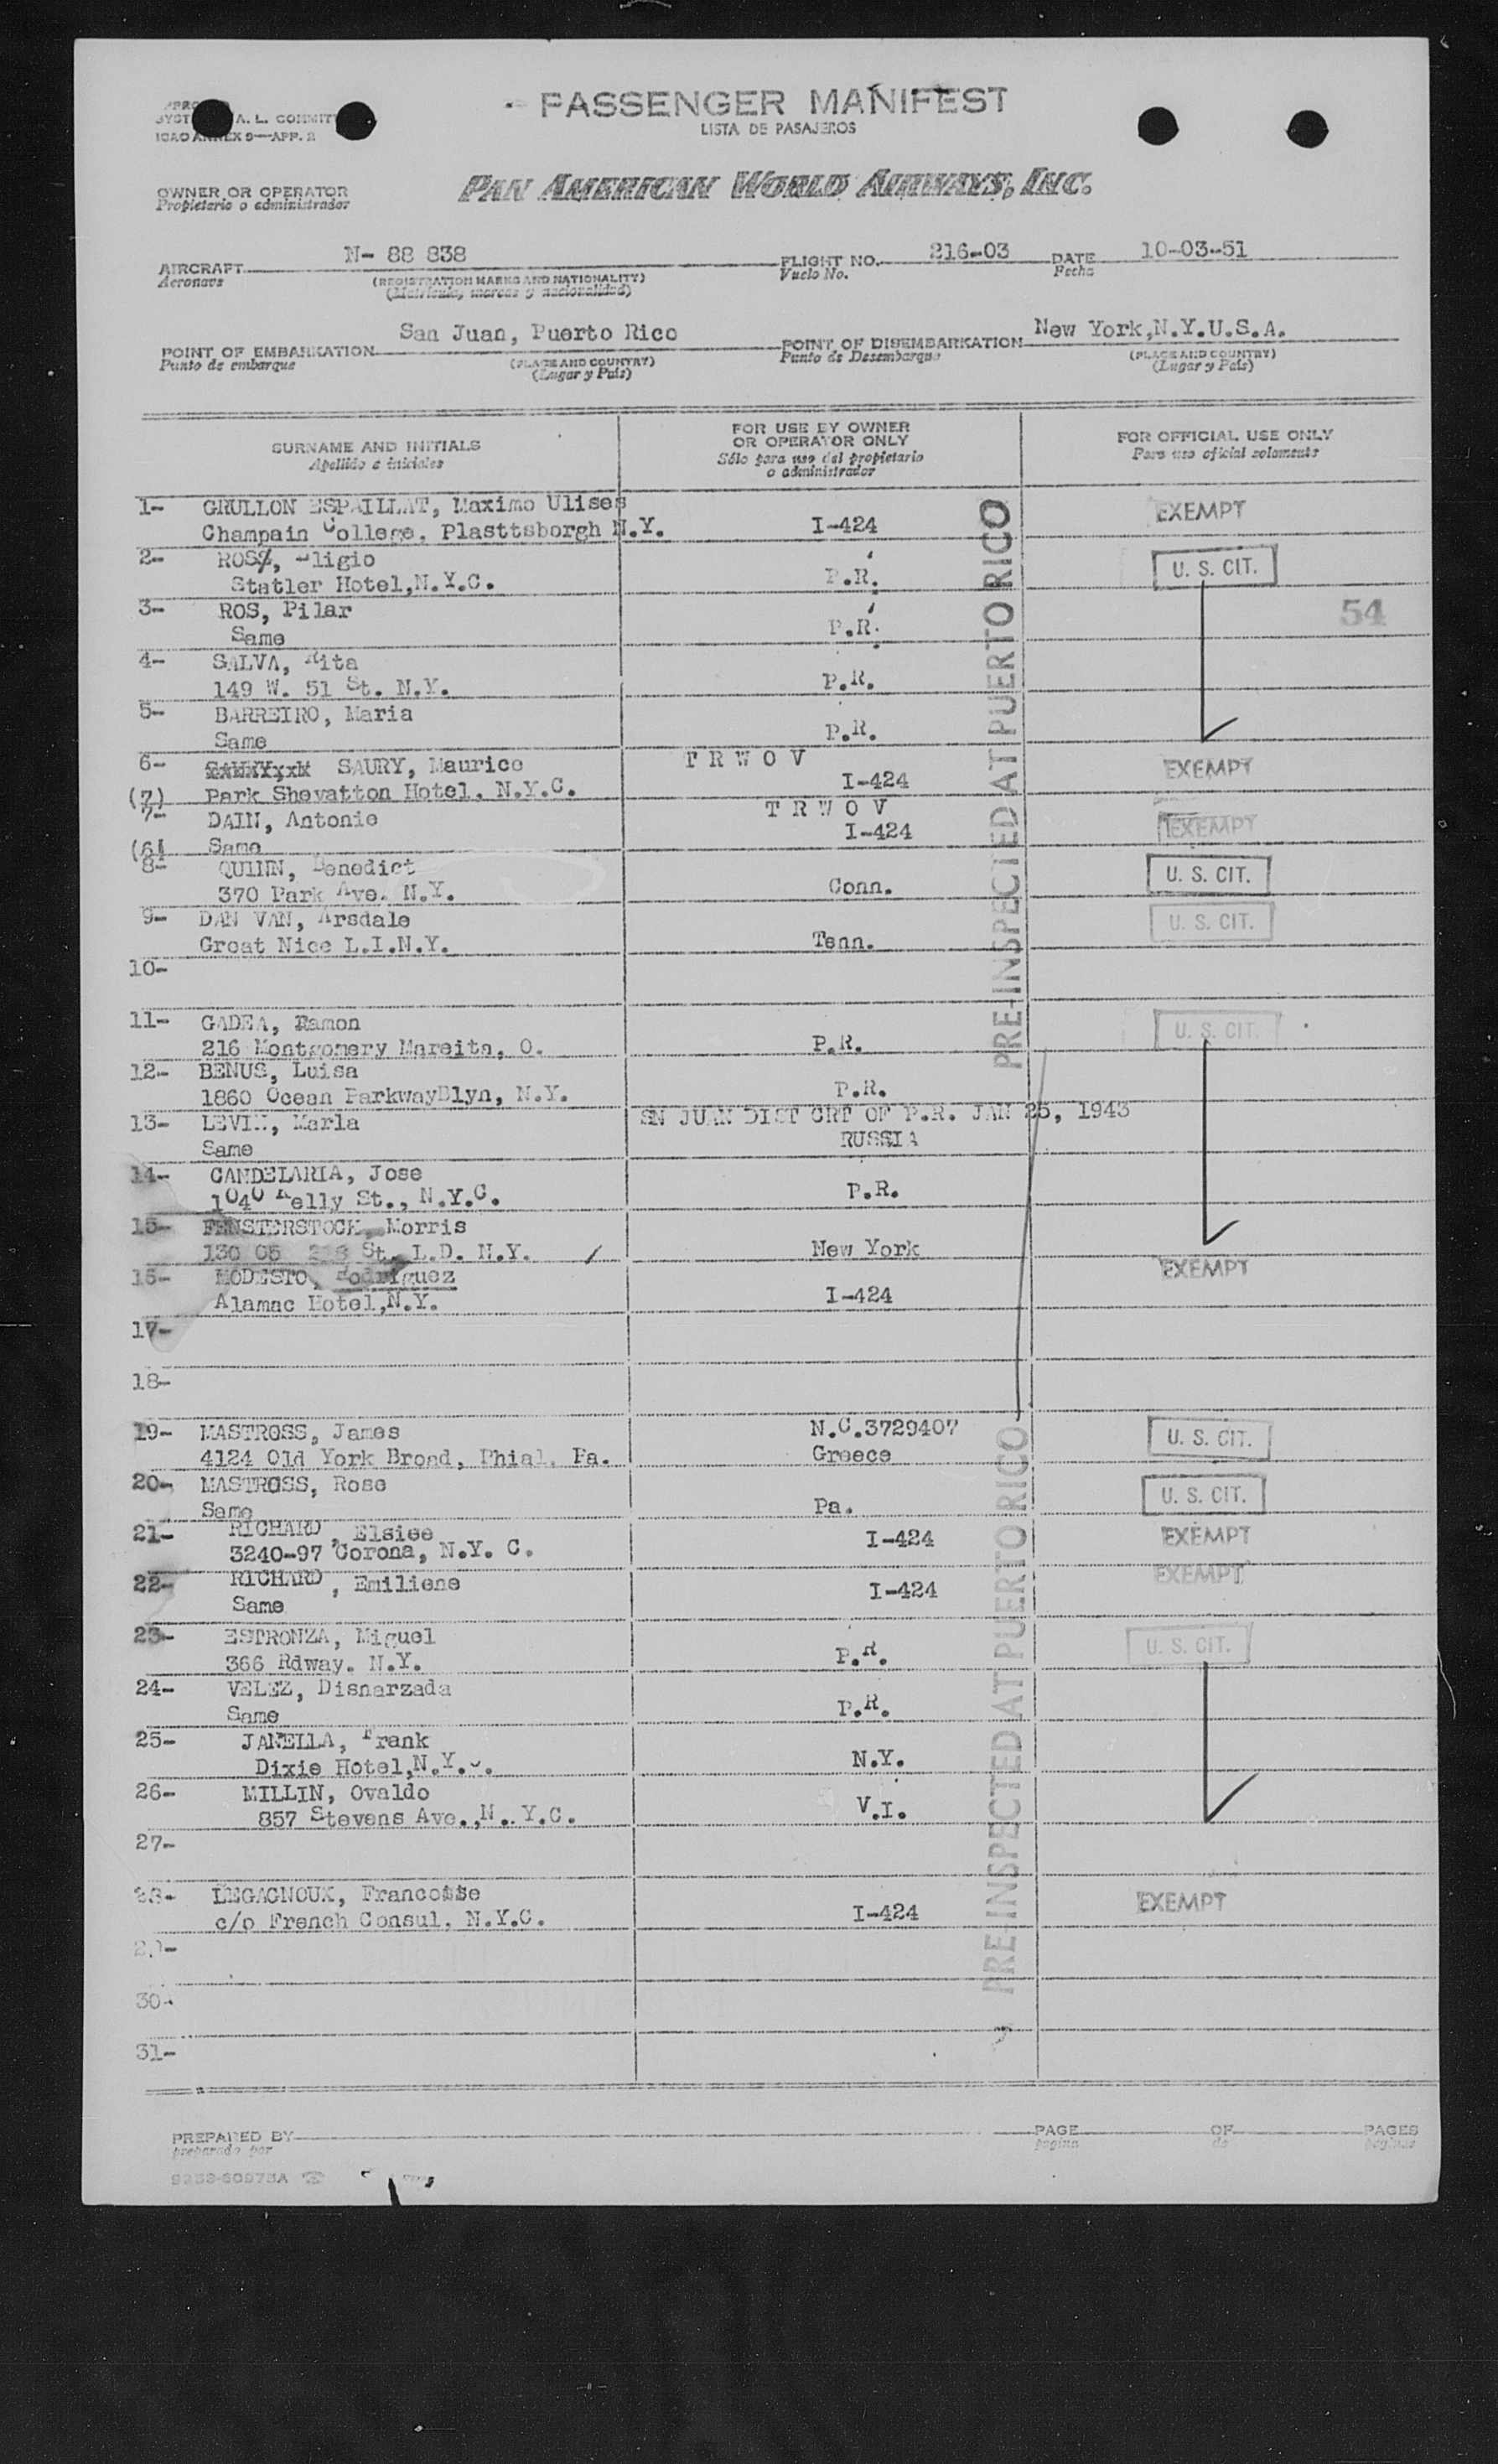 PASSENGER MANIFEST
LISTA DE PASAJEROS
A. L. COMMIT
ICAO ANNEX 9—APP. 2
OWNER OR OPERATOR
Propietario o administrador
PAN AMERICAN WORLD AIRWAYS, INC.
AIRCRAFT N- 88 838 FLIGHT NO. 216-03 DATE 10-03-51
Aeronave (REGISTRATION MARKS AND NATIONALITY) Vuelo No. Fecha
(Matricula, marcas y nacionalidad)
POINT OF EMBARKATION San Juan, Puerto Rico POINT OF DISEMBARKATION New York,N.Y.U.S.A.
Punto de embarque (PLACE AND COUNTRY) Punto de Desembarque (PLACE AND COUNTRY)
(Lugar y País) (Lugar y País)
SURNAME AND INITIALS
Apellido e iniciales
FOR USE BY OWNER
OR OPERATOR ONLY
Sólo para uso del propietario
o administrador
FOR OFFICIAL USE ONLY
Para uso oficial solamente
1- GRULLON ESPAILLAT, Maximo Ulises EXEMPT
Champain College, Plasttsborgh N.Y. I-424
2- ROS, Eligio U. S. CIT.
Statler Hotel,N.Y.C. P.R.
3- ROS, Pilar 54
Same P.R.
4- SALVA, Rita
149 W. 51 St. N.Y. P.R.
5- BARREIRO, Maria
Same P.R.
6- SAURY, Maurice T R W O V EXEMPT
(7) Park Shevatton Hotel, N.Y.C. I-424
7- DAIN, Antonie T R W O V
I-424 EXEMPT
(6) Same
8- QUINN, Benedict U. S. CIT.
370 Park Ave. N.Y. Conn.
9- DAN VAN, Arsdale U. S. CIT.
Groat Nice L.I.N.Y. Tenn.
10-
11- GADEA, Ramon U. S. CIT.
216 Montgomery Mareita, O. P.R.
12- BENUS, Luisa
1860 Ocean ParkwayBlyn, N.Y. P.R.
13- LEVIN, Marla SN JUAN DIST CRT OF P.R. JAN 25, 1943
Same RUSSIA
14- CANDELARIA, Jose
1040 Kelly St., N.Y.C. P.R.
15- FENSTERSTOCK, Morris
130 05 St. L.D. N.Y. / New York
16- MODESTO, Rodriguez EXEMPT
Alamac Hotel,N.Y. I-424
17-
18-
19- MASTROSS, James N.C.3729407 U. S. CIT.
4124 Old York Broad, Phial. Pa. Greece
20- MASTROSS, Rose U. S. CIT.
Same Pa.
21- RICHARD, Elsiee I-424 EXEMPT
3240-97 Corona, N.Y. C.
22- RICHARD, Emiliene I-424 EXEMPT
Same
23- ESTRONZA, Miguel U. S. CIT.
366 Rdway. N.Y. P.R.
24- VELEZ, Disnarzada
Same P.R.
25- JANELLA, Frank
Dixie Hotel,N.Y.C. N.Y.
26- MILLIN, Ovaldo
857 Stevens Ave.,N.. Y.C. V.I.
27-
28- LEGAGNOUX, Francoise EXEMPT
c/o French Consul. N.Y.C. I-424
29-
30-
31-
PRE-INSPECTED AT PUERTO RICO
PRE-INSPECTED AT PUERTO RICO
PREPARED BY PAGE OF PAGES
preparado por pagina de paginas